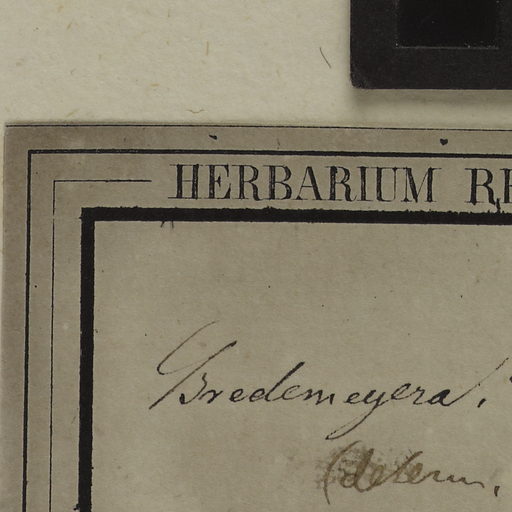 HERBARIUM
Bredemeyera
(determ.